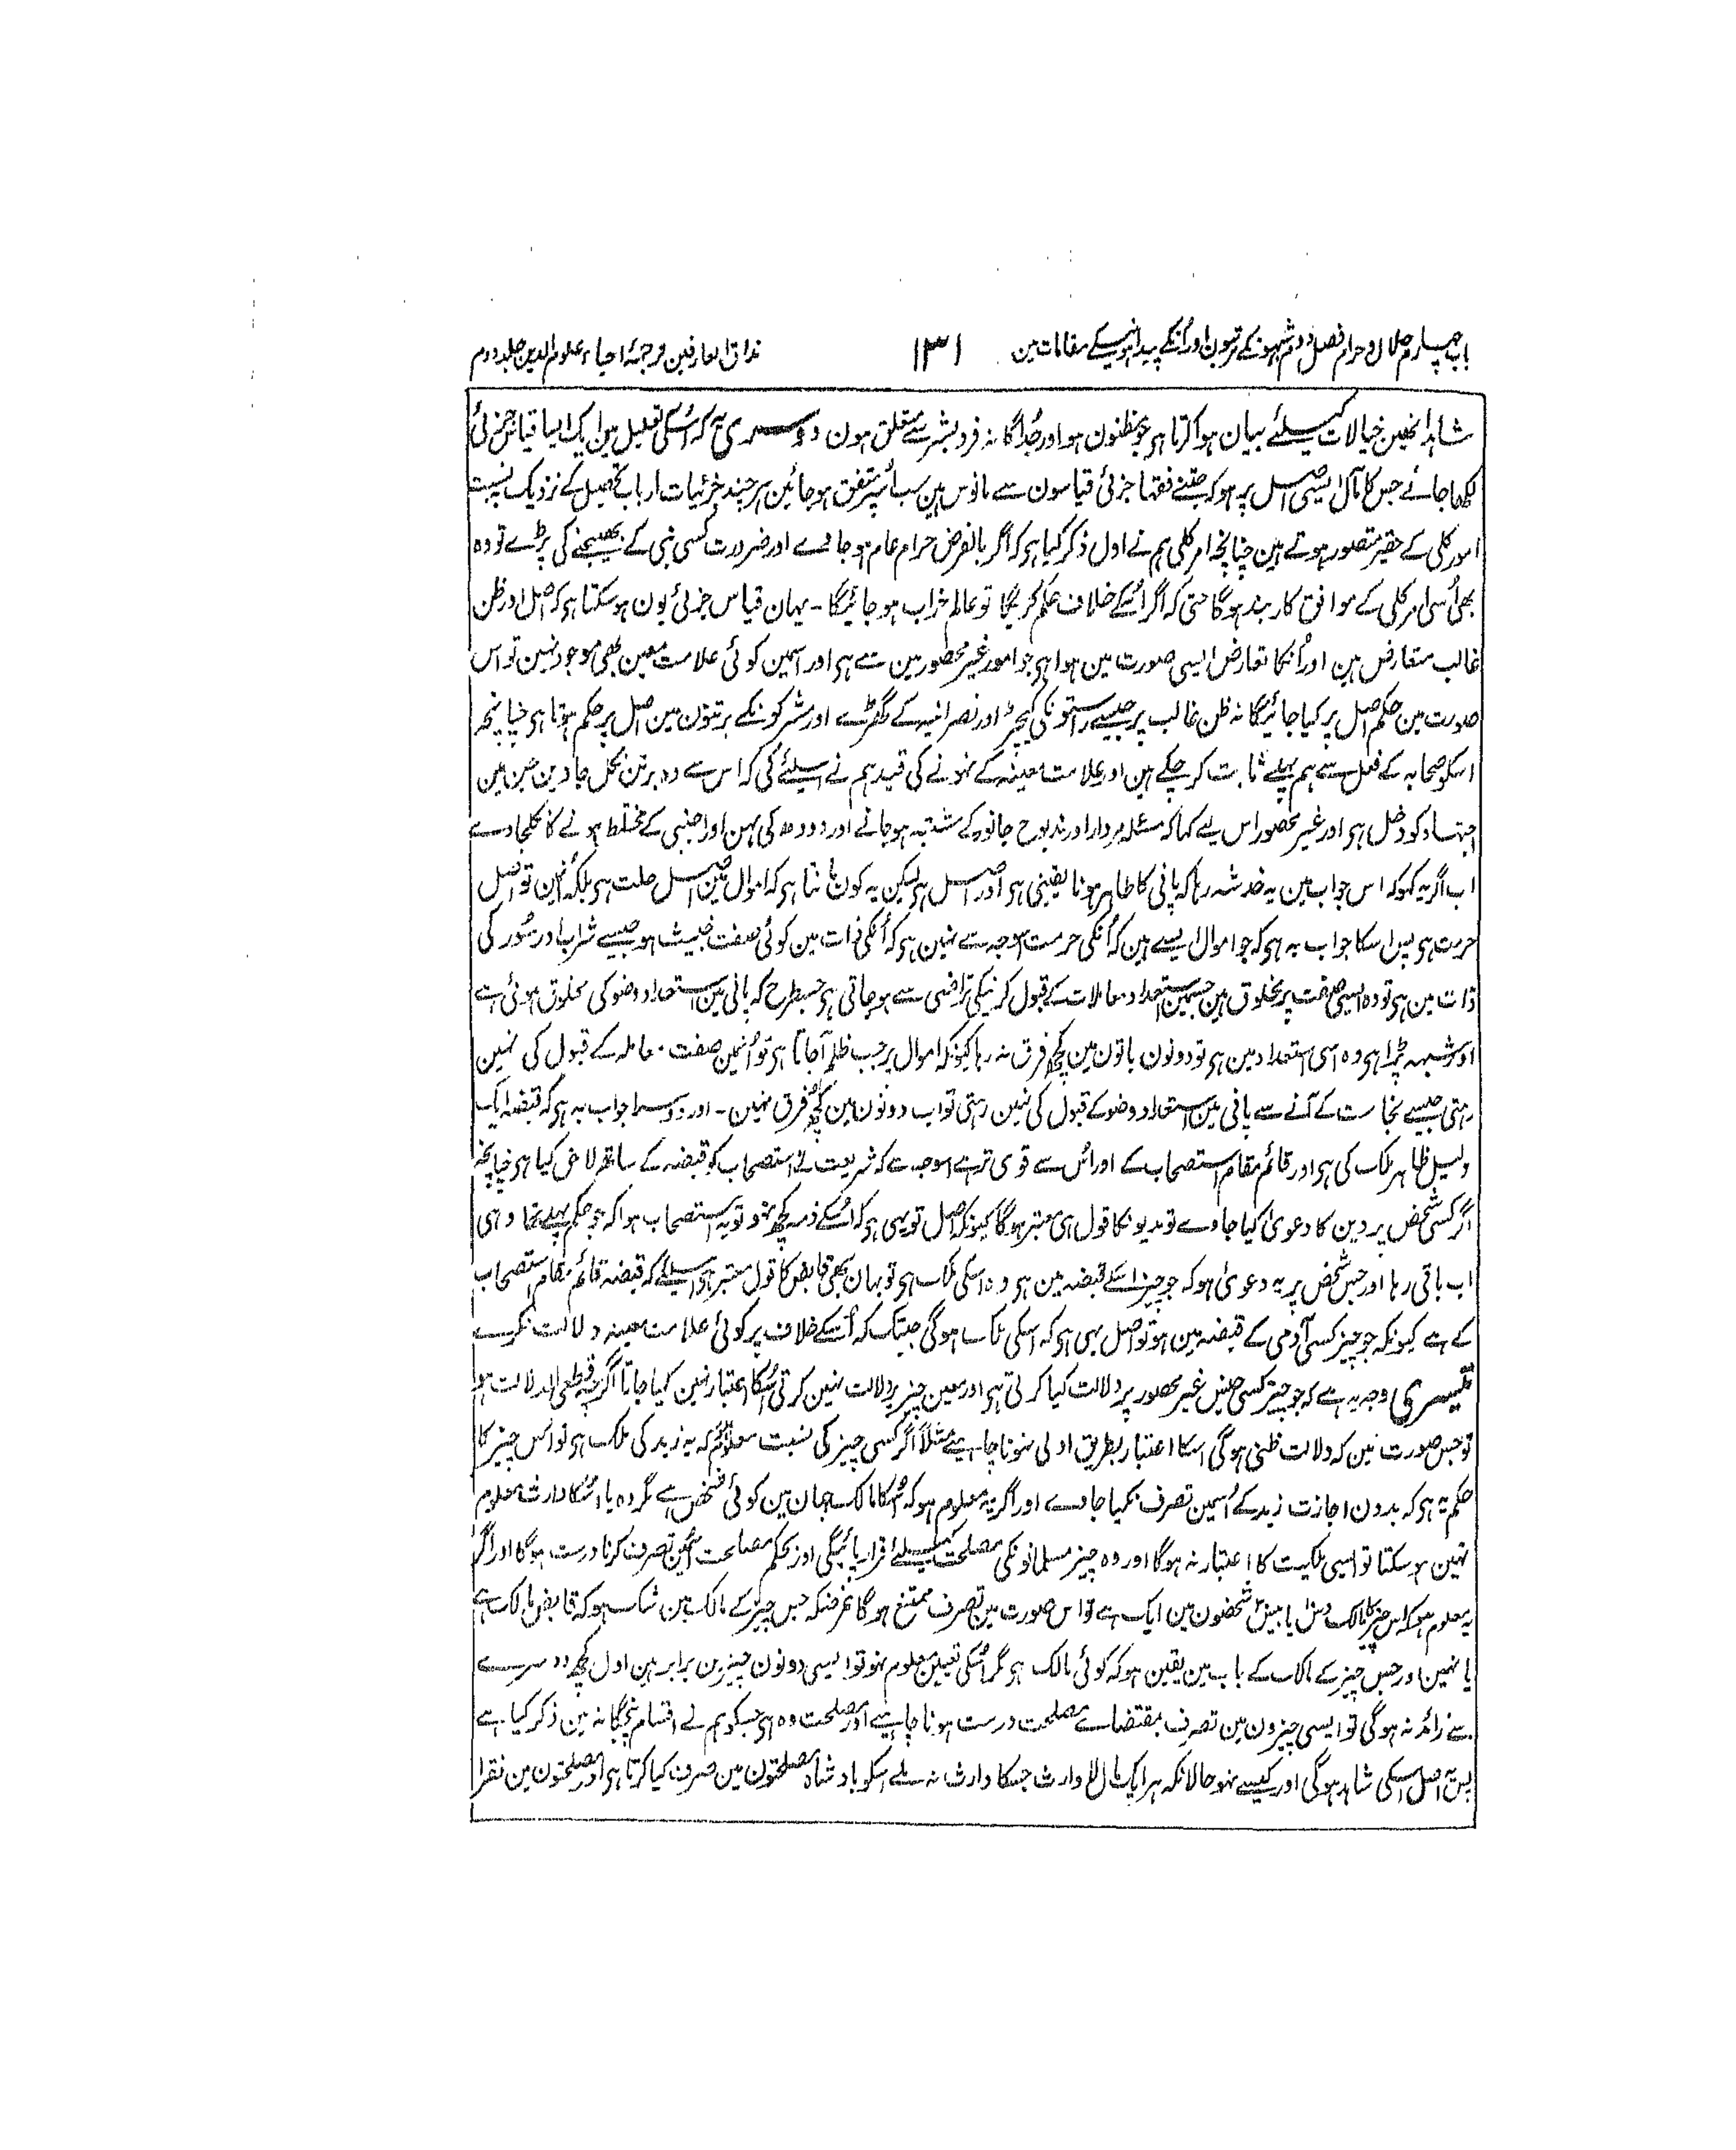 باب چہارم حلال و حرام فصل دوم شبہونکے مرتبون اور اُنکے پیدا ہونیکے مقامات مین
۱۳۱
مذاق العارفین ترجمۂ احیاء علوم الدین جلد دوم
شاہد اُنھین خیالات کیلئے بیان ہوا کرتا ہی جو مظنون ہو اور جُداگانہ فرد بشر سے متعلق ہون دوسری یہ کہ اُسکی تعلیل مین ایک ایسا قیاس جزئی
لکھا جائے جس کا مآل ایسی اصل پر ہو کہ جتنے فقہا جزئی قیاسون سے مانوس ہین سب اُسپر متفق ہو جائین ہر چند جزئیات ارباب تحصیل کے نزدیک بہ نسبت
امور کلی کے حقیر متصور ہوتے ہین چنانچہ امر کلی ہم نے اول ذکر کیا ہی کہ اگر بالفرض حرام عام ہو جاوے اور ضرورت کسی نبی کے بھیجنے کی پڑے تو وہ
بھی اُسی امر کلی کے موافق کاربند ہوگا حتی کہ اگر اُسکے خلاف حکم کریگا تو عالم خراب ہو جائیگا - یہان قیاس جزئی یون ہو سکتا ہی کہ اصل اور ظن
غالب متعارض ہین اور اُنکا تعارض ایسی صورت مین ہوا ہی جو امور غیر محصور مین سے ہی اور اسمین کوئی علامت معین بھی موجود نہین تو اس
صورت مین حکم اصل پر کیا جائیگا نہ ظن غالب پر جیسے راستونکی کیچڑ اور نصرانیہ کے گھڑے اور مشرکونکے برتنون مین اصل پر حکم ہوتا ہی چنانچہ
اسکو صحابہ کے فعل سے ہم پہلے ثابت کر چکے ہین اور علامت معینہ کے نہونے کی قید ہم نے اسلئے کی کہ اس سے وہ برتن نکل جاوین جن مین
اجتہاد کو دخل ہی اور غیر محصور اس لیے کہا کہ مسئلہ مردار اور مذبوح جانور کے مشتبہ ہو جانے اور دودھ کی بہن اور اجنبی کے مختلط ہونے کا نکلجاوے
اب اگر یہ کہو کہ اس جواب مین یہ خدشہ رہا کہ پانی کا طاہر ہونا یقینی ہی اور اصل ہی لیکن یہ کون مانتا ہی کہ اموال مین اصل حلت ہی بلکہ اُنمین تو اصل
حرمت ہی پس اسکا جواب یہ ہی کہ جو اموال ایسے ہین کہ اُنکی حرمت اسوجہ سے نہین ہی کہ اُنکی ذات مین کوئی صفت خبیث ہو جیسے شراب اور سُور کی
ذات مین ہی تو وہ ایسی صفت پر مخلوق ہین جسمین استعداد معاملات کے قبول کرنیکی تراضی سے ہو جاتی ہی جسطرح کہ پانی مین استعداد وضو کی مخلوق ہوئی ہے
اور شبہہ پڑا ہی وہ اسی استعداد مین ہی تو دونون باتون مین کچھ فرق نہ رہا کیونکہ اموال پر جب ظلم آجاتا ہی تو اُنمین صفت معاملہ کے قبول کی نہین
رہتی جیسے نجاست کے آنے سے پانی مین استعداد وضو کے قبول کی نہین رہتی تو اب دونون مین کچھ فرق نہین - اور دوسرا جواب یہ ہی کہ قبضہ ایک
دلیل ظاہر ملک کی ہی اور قائم مقام استصحاب کے اور اُس سے قوی تر ہے اسوجہ سے کہ شریعت نے استصحاب کو قبضہ کے ساتھ لاحق کیا ہی چنانچہ
اگر کسی شخص پر دین کا دعوی کیا جاوے تو مدیونکا قول ہی معتبر ہوگا کیونکہ اصل تو یہی ہی کہ اُسکے ذمہ کچھ نہو تو یہ استصحاب ہوا کہ جو حکم پہلے تھا وہی
اب باقی رہا اور جس شخص پر یہ دعویٰ ہو کہ جو چیز اسکے قبضہ مین ہی وہ اسکی ملک ہی تو یہان بھی قابض کا قول معتبر ہی اسلئے کہ قبضہ قائم مقام استصحاب
کے ہے کیونکہ جو چیز کسی آدمی کے قبضہ مین ہو تو اصل یہی ہی کہ اسکی ملک ہوگی جبتک کہ اُسکے خلاف پر کوئی علامت معینہ دلالت نکرے
تیسری وجہ یہ ہے کہ جو چیز کسی جنس غیر محصور پر دلالت کیا کرتی ہی اور معین چیز پر دلالت نہین کرتی اُسکا اعتبار نہین کیا جاتا اگرچہ قطعی الدلالت ہو
تو جس صورت مین کہ دلالت ظنی ہوگی اسکا اعتبار بطریق اولی نہونا چاہیے مثلاً اگر کسی چیز کی نسبت معلوم ہو کہ یہ زید کی ملک ہی تو اُس چیز کا
حکم یہ ہی کہ بدون اجازت زید کے اُسمین تصرف نکیا جاوے اور اگر یہ معلوم ہو کہ اُسکا مالک جہان مین کوئی شخص ہے مگر وہ یا اُسکا وارث معلوم
نہین ہو سکتا تو ایسی ملکیت کا اعتبار نہ ہوگا اور وہ چیز مسلمانونکی مصلحت کیلئے قرار پائیگی اور بحکم مصلحت اُسمین تصرف کرنا درست ہوگا اور اگر
یہ معلوم ہو کہ اس چیز کا مالک دس یا بیس شخصون مین ایک ہے تو اس صورت مین تصرف ممتنع ہوگا غرضکہ جس چیز کے مالک مین شک ہو کہ قابض مالک ہے
یا نہین اور جس چیز کے مالک کے باب مین یقین ہو کہ کوئی مالک ہی مگر اُسکی تعیین معلوم نہو تو ایسی دونون چیزین برابر ہین اول کچھ دوسرے
سے زائد نہ ہوگی تو ایسی چیزون مین تصرف بمقتضاے مصلحت درست ہونا چاہیے اور مصلحت وہ ہی جسکو ہم نے اقسام پنجگانہ مین ذکر کیا ہے
پس یہ اصل اسکی شاہد ہوگی اور کیسے نہو حالانکہ ہر ایک مال لا وارث جسکا وارث نہ ملے اسکو بادشاہ مصلحتون مین صرف کیا کرتا ہی اور مصلحتون مین فقرا